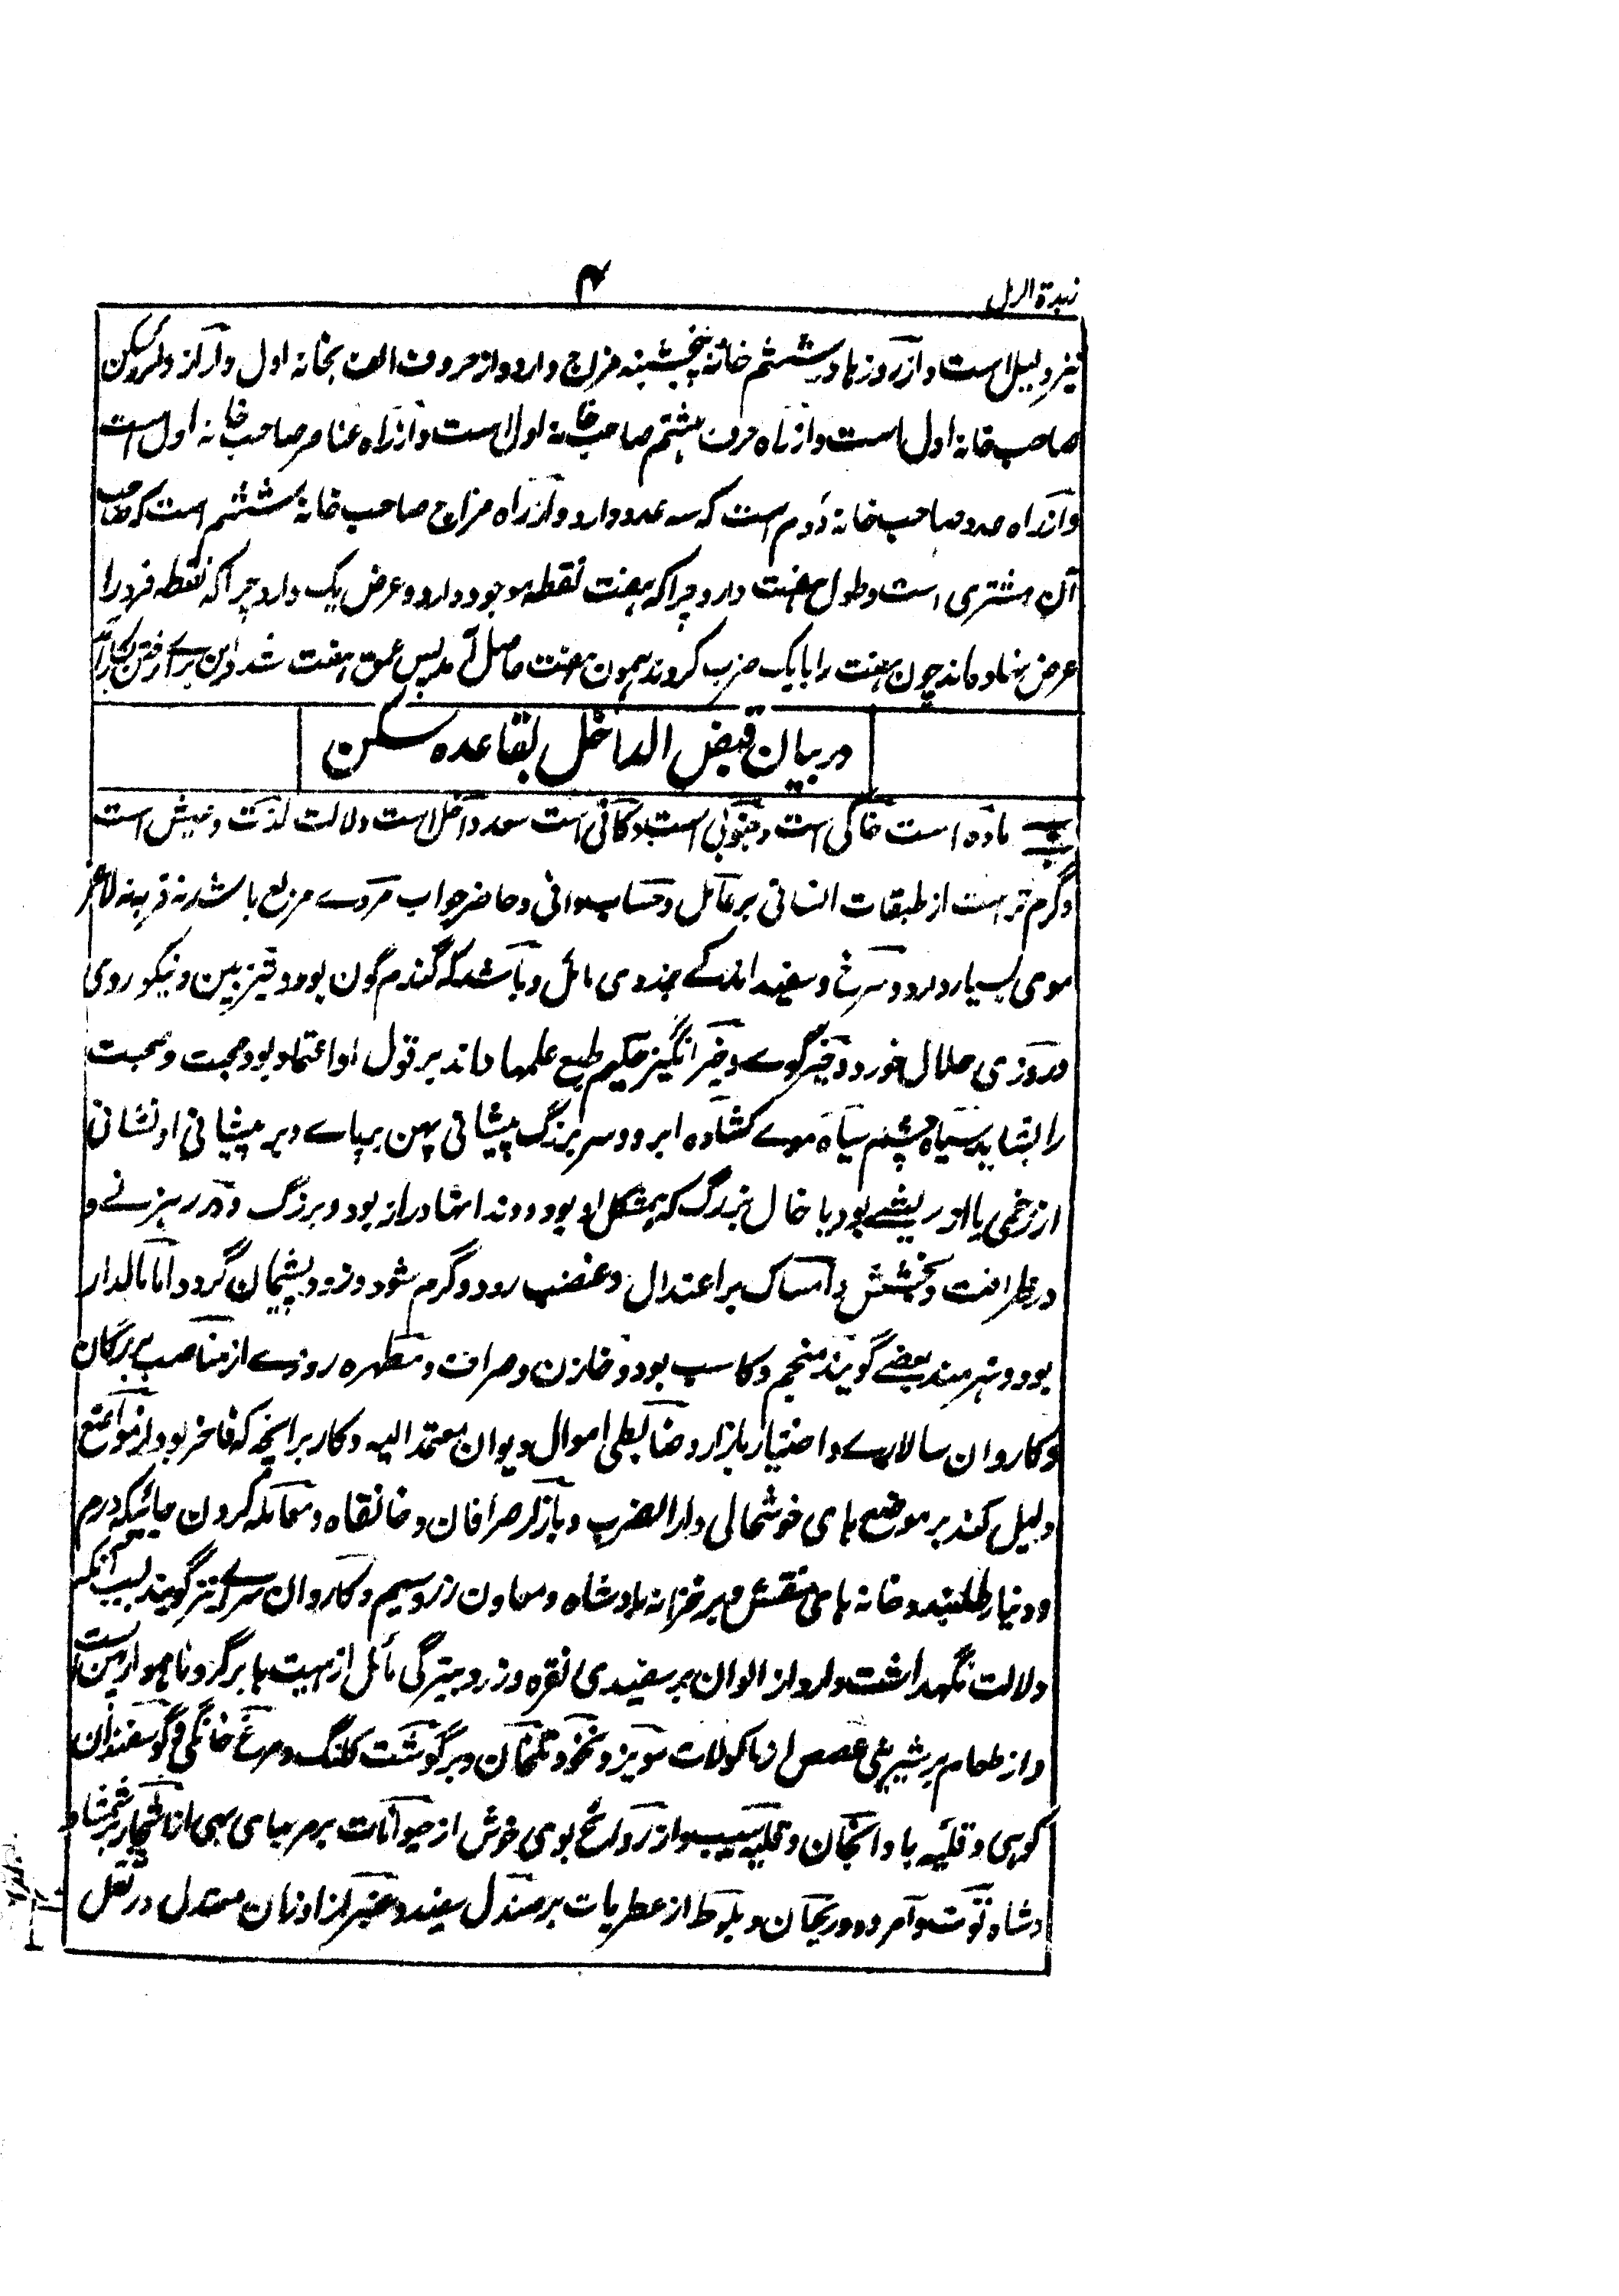 زبدة الرمل
۴
نیز دلیل است و از روزها در ششم خانه پنجشنبه مزاج دارد و از حروف الف بخانه اول دارد از دائره سکن
صاحب خانه اول است و از راه حرف هشتم صاحب خانه اول است و از راه عناصر صاحب خانه اول است
و از راه عدد صاحب خانه دوم است که سه عدد دارد و از راه مزاج صاحب خانه ششم است که صاحب
آن مشتری است و طول هفت دارد چرا که هفت نقطه موجود دارد و عرض یک دارد چرا که نقطه فرد را
عرض نهاده اند چون هفت را با یک ضرب کردند همون هفت حاصل آمد پس عمق هفت شد این برای
در بیان قبض الداخل بقاعده سکن
ماده است خاکی است و جنوبی است و کانی است سعد داخل است دلالت لذت و عیش است
و گرم تر است از طبقات انسانی بر عامل و حساب دانی و حاضر جواب مردے مربع باشد نه فربه نه لاغر
موی بسیار دارد و سرخ و سفید اندکے بزردی مائل و باشد که گندم گون بود و تیز بین و نیکو روی
و روزی حلال خورد و خیر گوے و خیر انگیز حکیم طبع علمها داند بر قول او اعتماد بود محبت و صحبت
را بشاید سیاه چشم سیاه موے کشاده ابرو و سر بزرگ پیشانی پهن بر پاے و بر پیشانی او نشانی
از زخمی یا از ریشے بود یا خال بزرگ که بشکل او بود و دندانها دراز بود و بزرگ و در رهزنے و
در ظرافت و بخشش و امساک بر اعتدال و غضب رود و گرم شود و زود پشیمان گردد اما مالدار
بود و هنرمند بعضے گویند منجم و کاسب بود و خازن و صراف و مطهره روزے از مناصب بزرگان
و کاروان سالارے و اختیار بازار و ضابطی اموال دیوان معتمد الیه و کار بر آنچه که فاخر بود از مواضع
دلیل کند بر موضع های خوشحالی و دار الضرب و بازار صرافان و خانقاه و معامله کردن جائیکه درم
و دینار طلبند و خانه های منقش و بر خزانه بادشاه و معاون زر و سیم و کاروان سرائے نیز گویند بسبب آنکه
دلالت نگهداشت دارد از الوان بر سفیدی نقره و زرد به تیرگی مائل از هیئت ها بر گرد ناهموار پهن است
و از طعام بر شیرینی از ماکولات مویز و نخود و بر گوشت کلنگ و مرغ خانگی و گوسفندان
کوهی و قلیه بادانجان و قلیه سیب و از روائح بوی خوش از حیوانات بر مرغهای از اشجار بر شمشاد
و شاه توت و امرود و ریحان و بلوط از عطریات بر صندل سفید و عنبر از اوزان معتدل در ثقل